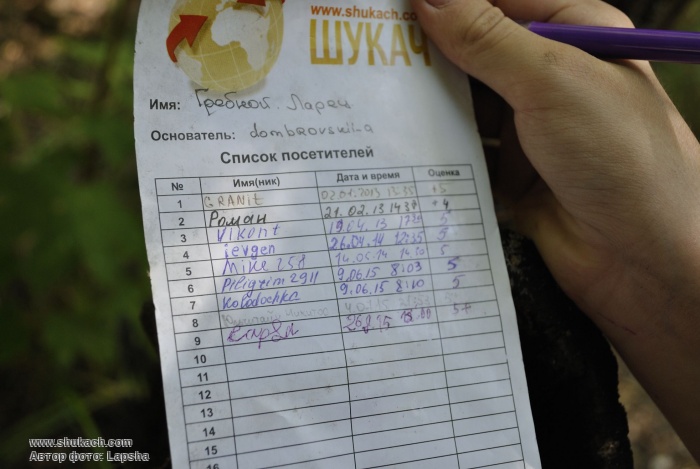 www.shukach.co
ШУКАЧ
Имя: Гребной. Ларец
Основатель: dombrovskii-a
Список посетителей
№ Имя(ник) Дата и время Оценка
1 GRANit 02.01.2013 13:35 +5
2 Роман 21.02.13 14 +4
3 Vikont 19.04.13 5
4 ievgen 26.04.14 12:35 5
5 Mike 258 14.05.14 5
6 Piligrim2911 9.06.15 8:03 5
7 Kolodochka 9.06.15 8:10 5
8
9 5+
10
11
12
13
14
15
16
www.shukach.com
Автор фото: Lapsha